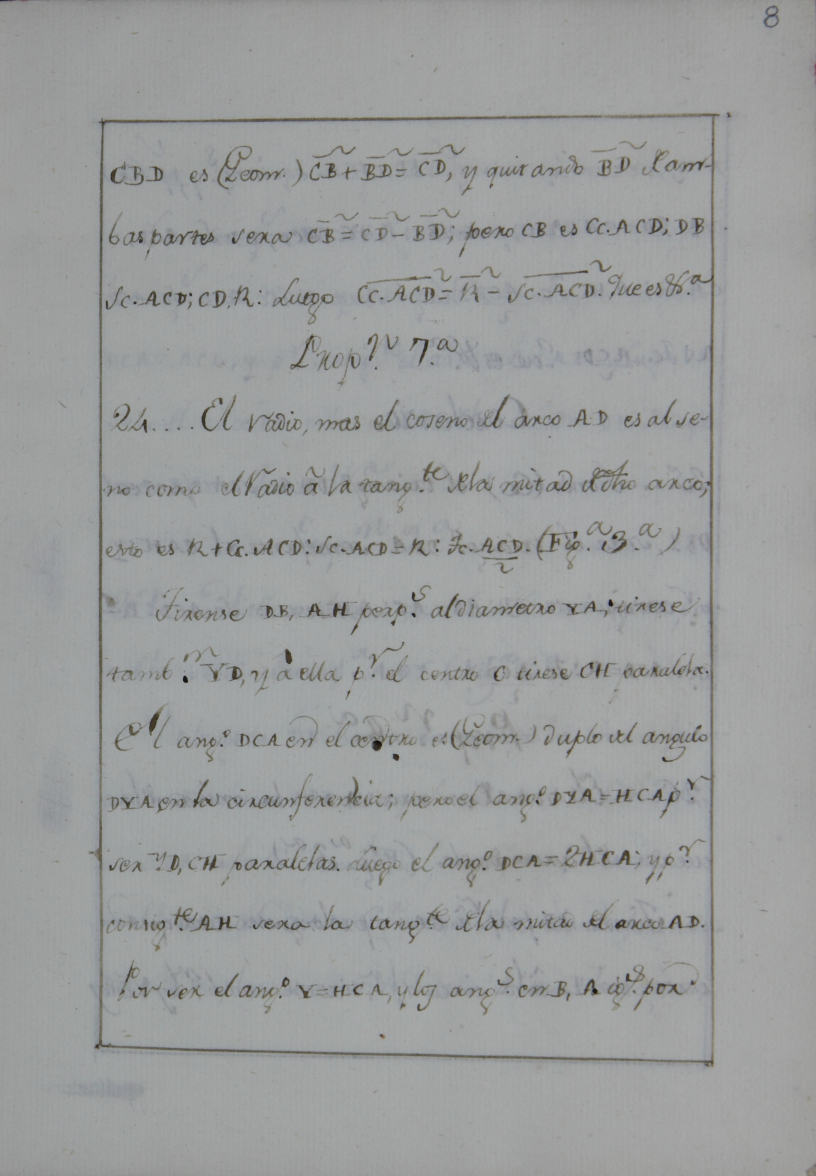 8
CBD es (Geom.) C̅B̅² + B̅D̅² = C̅D̅², y quitando B̅D̅² de am-
bas partes sera C̅B̅² = C̅D̅² - B̅D̅²; pero CB es Cc. ACD; DB
Sc. ACD; CD, R: Luego C̅c̅.̅ ̅A̅C̅D̅² = R̅² - S̅c̅.̅ ̅A̅C̅D̅². Que es &.ª
Prop.ⁿ 7.ª
24.... El radio, mas el coseno del arco AD es al se-
no como el Radio â la tang.te de la mitad de dho arco;
esto es R + Cc. ACD: Sc. ACD = R: Tc. ACD/2. (Fig.ª 3.ª)
Tirense DB, AH perp.s al diametro YA; tirese
tamb.n YD, y a ella p.r el centro C tirese CH paralela.
El ang.o DCA en el centro es (Geom.) duplo del angulo
DYA en la circunferencia; pero el ang.o DYA = HCA p.r
ser YD, CH paralelas. Luego el ang.o DCA = 2HCA; y p.r
consig.te AH sera la tang.te de la mitad del arco AD.
Por ser el ang.o Y = HCA, y los ang.s en B, A ig.s por